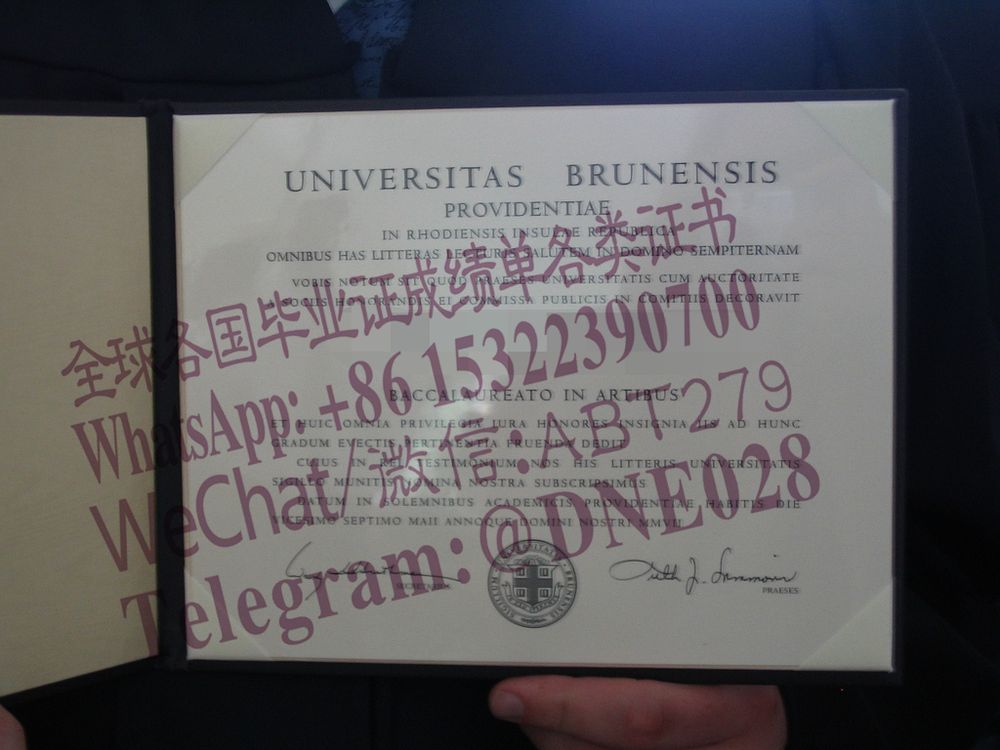 UNIVERSITAS BRUNENSIS
PROVIDENTIAE
IN RHODIENSIS INSULAE REPUBLICA
OMNIBUS HAS LITTERAS LECTURIS SALUTEM IN DOMINO SEMPITERNAM
VOBIS NOTUM SIT QUOD PRAESES UNIVERSITATIS CUM AUCTORITATE
SOCIIS HONORANDIS EI COMMISSA PUBLICIS IN COMITIIS DECORAVIT
全球各国毕业证成绩单各类证书
WhatsApp: +86 15322390700
BACCALAUREATO IN ARTIBUS
WeChat/微信:ABT279
ET HUIC OMNIA PRIVILEGIA IURA HONORES INSIGNIA IIS AD HUNC
GRADUM EVECTIS PERTINENTIA FRUENDA DEDIT
CUIUS IN REI TESTIMONIUM NOS HIS LITTERIS UNIVERSITATIS
SIGILLO MUNITIS NOMINA NOSTRA SUBSCRIPSIMUS
DATUM IN SOLEMNIBUS ACADEMICIS PROVIDENTIAE HABITIS DIE
VICESIMO SEPTIMO MAII ANNOQUE DOMINI NOSTRI MMVII
Telegram: @DNE028
Ruth J. Simmons
PRAESES